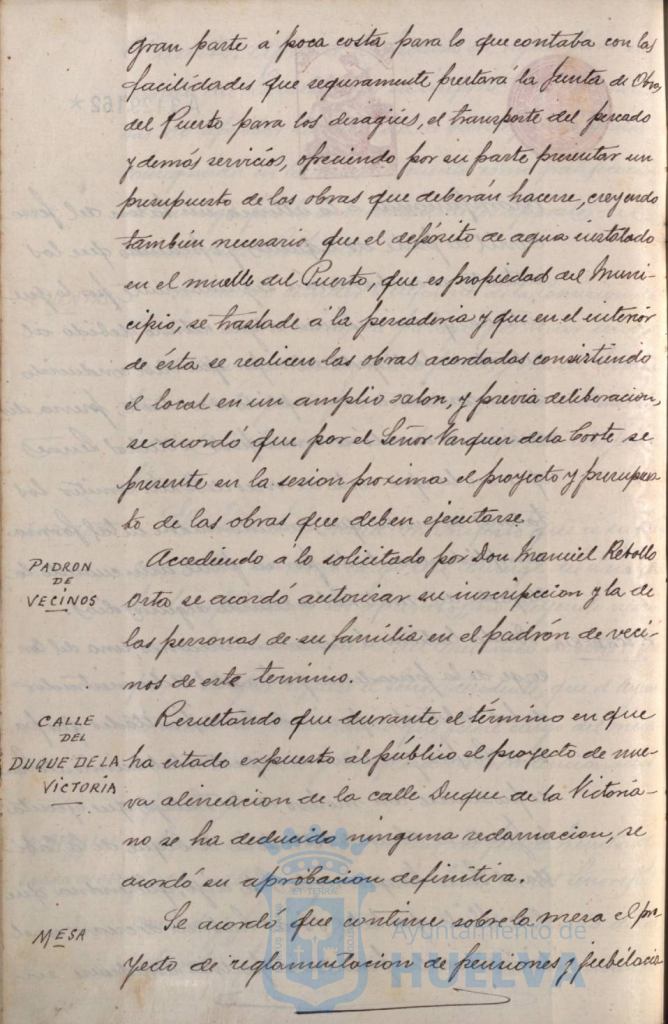 gran parte á poca costa para lo que contaba con las
facilidades que seguramente prestará la Junta de Obras
del Puerto para los desagües, el transporte del pescado
y demás servicios, ofreciendo por su parte presentar un
presupuesto de las obras que deberán hacerse, creyendo
también necesario que el depósito de agua instalado
en el muelle del Puerto, que es propiedad del Muni-
cipio, se traslade á la pescaderia y que en el interior
de ésta se realicen las obras acordadas consistiendo
el local en un amplio salon, y previa deliberacion,
se acordó que por el Señor Vazquez de la Corte se
presente en la sesion proxima el proyecto y presupues
to de las obras que deben ejecutarse.
PADRON
DE
VECINOS
Accediendo a lo solicitado por Don Manuel Rebollo
Orta se acordó autorizar su inscripcion y la de
las personas de su familia en el padrón de veci-
nos de este termino.
CALLE
DEL
DUQUE DE LA
VICTORIA
Resultando que durante el término en que
ha estado expuesto al público el proyecto de nue-
va alineacion de la calle Duque de la Victoria
no se ha deducido ninguna reclamacion, se
acordó su aprobacion definitiva.
MESA
Se acordó que continue sobre la mesa el pro-
yecto de reglamentacion de pensiones y jubilacio
Ayuntamiento de
HUELVA